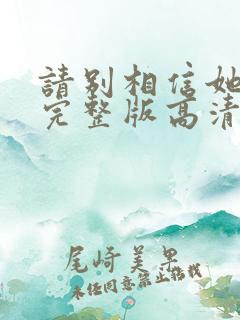 請别相信她
完整版高清
尾崎美里
未经同意禁止转载